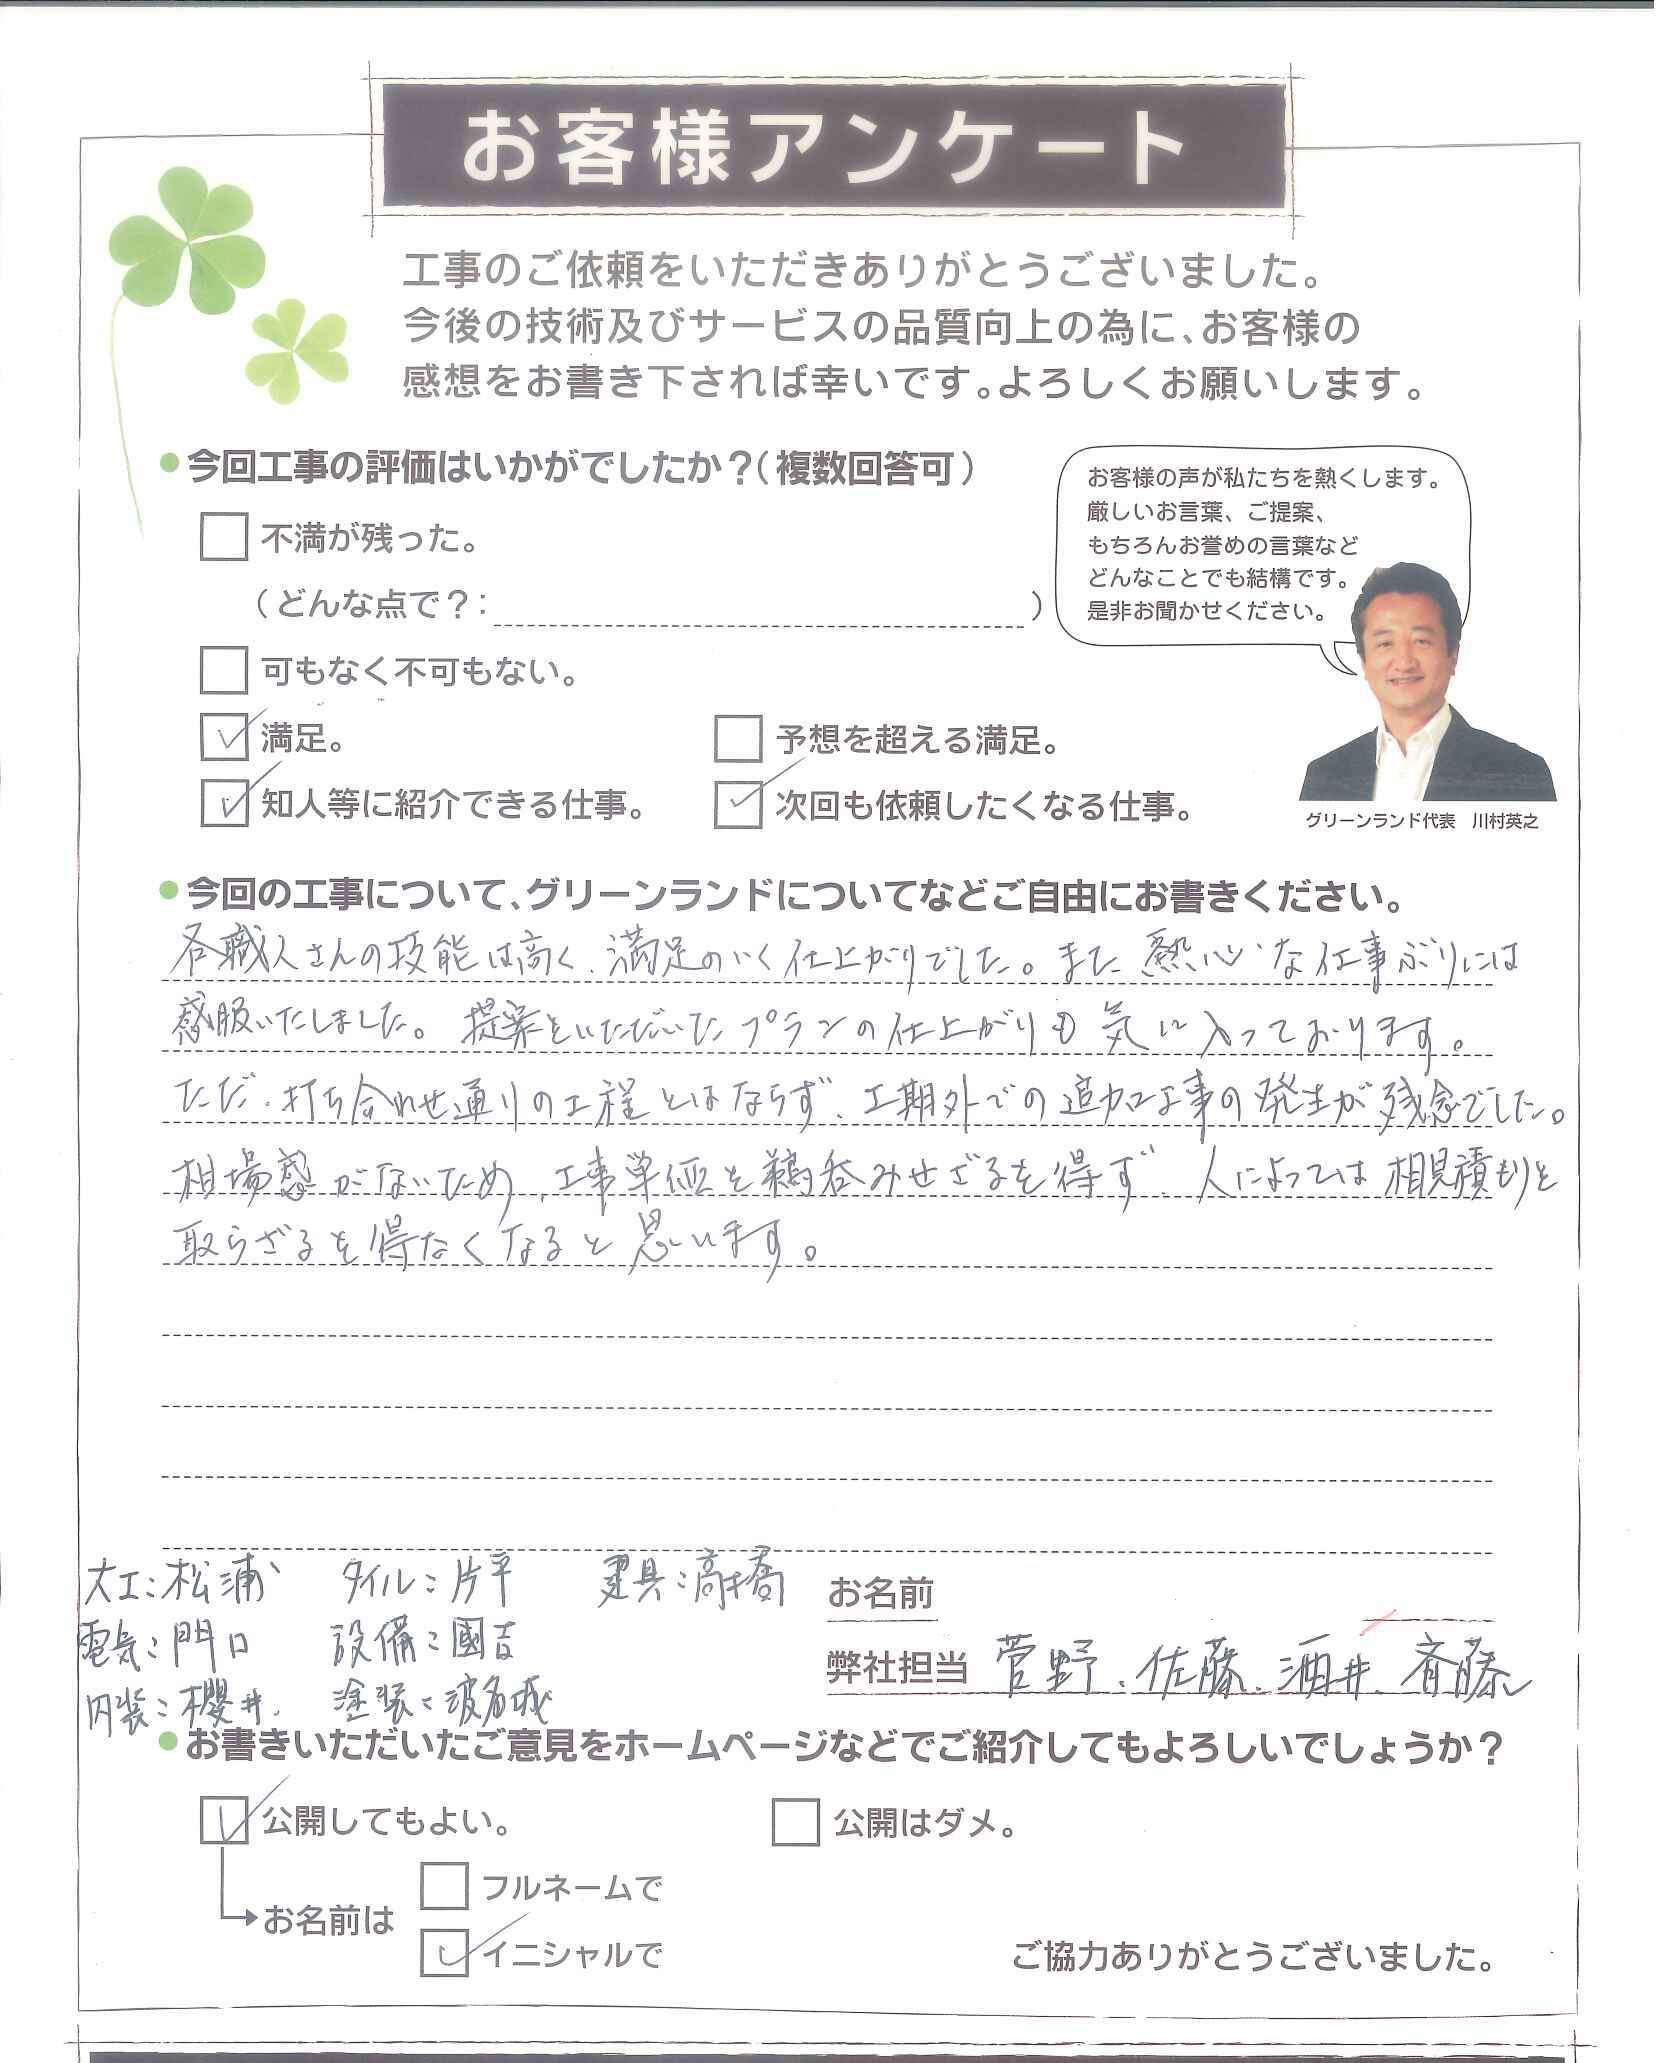 お客様アンケート
工事のご依頼をいただきありがとうございました。
今後の技術及びサービスの品質向上の為に、お客様の
感想をお書き下されば幸いです。よろしくお願いします。
今回工事の評価はいかがでしたか？（複数回答可）
不満が残った。
（どんな点で？：　）
可もなく不可もない。
満足。
予想を超える満足。
知人等に紹介できる仕事。
次回も依頼したくなる仕事。
お客様の声が私たちを熱くします。
厳しいお言葉、ご提案、
もちろんお誉めの言葉など
どんなことでも結構です。
是非お聞かせください。
グリーンランド代表　川村英之
今回の工事について、グリーンランドについてなどご自由にお書きください。
各職人さんの技能は高く、満足のいく仕上がりでした。また熱心な仕事ぶりには
感服いたしました。提案をいただいたプランの仕上がりも気に入っております。
ただ、打ち合わせ通りの工程とはならず、工期外での追加工事の発生が残念でした。
相場感がないため、工事単価を鵜呑みせざるを得ず、人によっては相見積もりを
取らざるを得なくなると思います。
大工：松浦　タイル：片平　建具：高橋
電気：門口　設備：國吉
内装：櫻井　塗装：波名城
お名前
弊社担当　菅野、佐藤、酒井、斉藤
お書きいただいたご意見をホームページなどでご紹介してもよろしいでしょうか？
公開してもよい。
公開はダメ。
お名前は
フルネームで
イニシャルで
ご協力ありがとうございました。